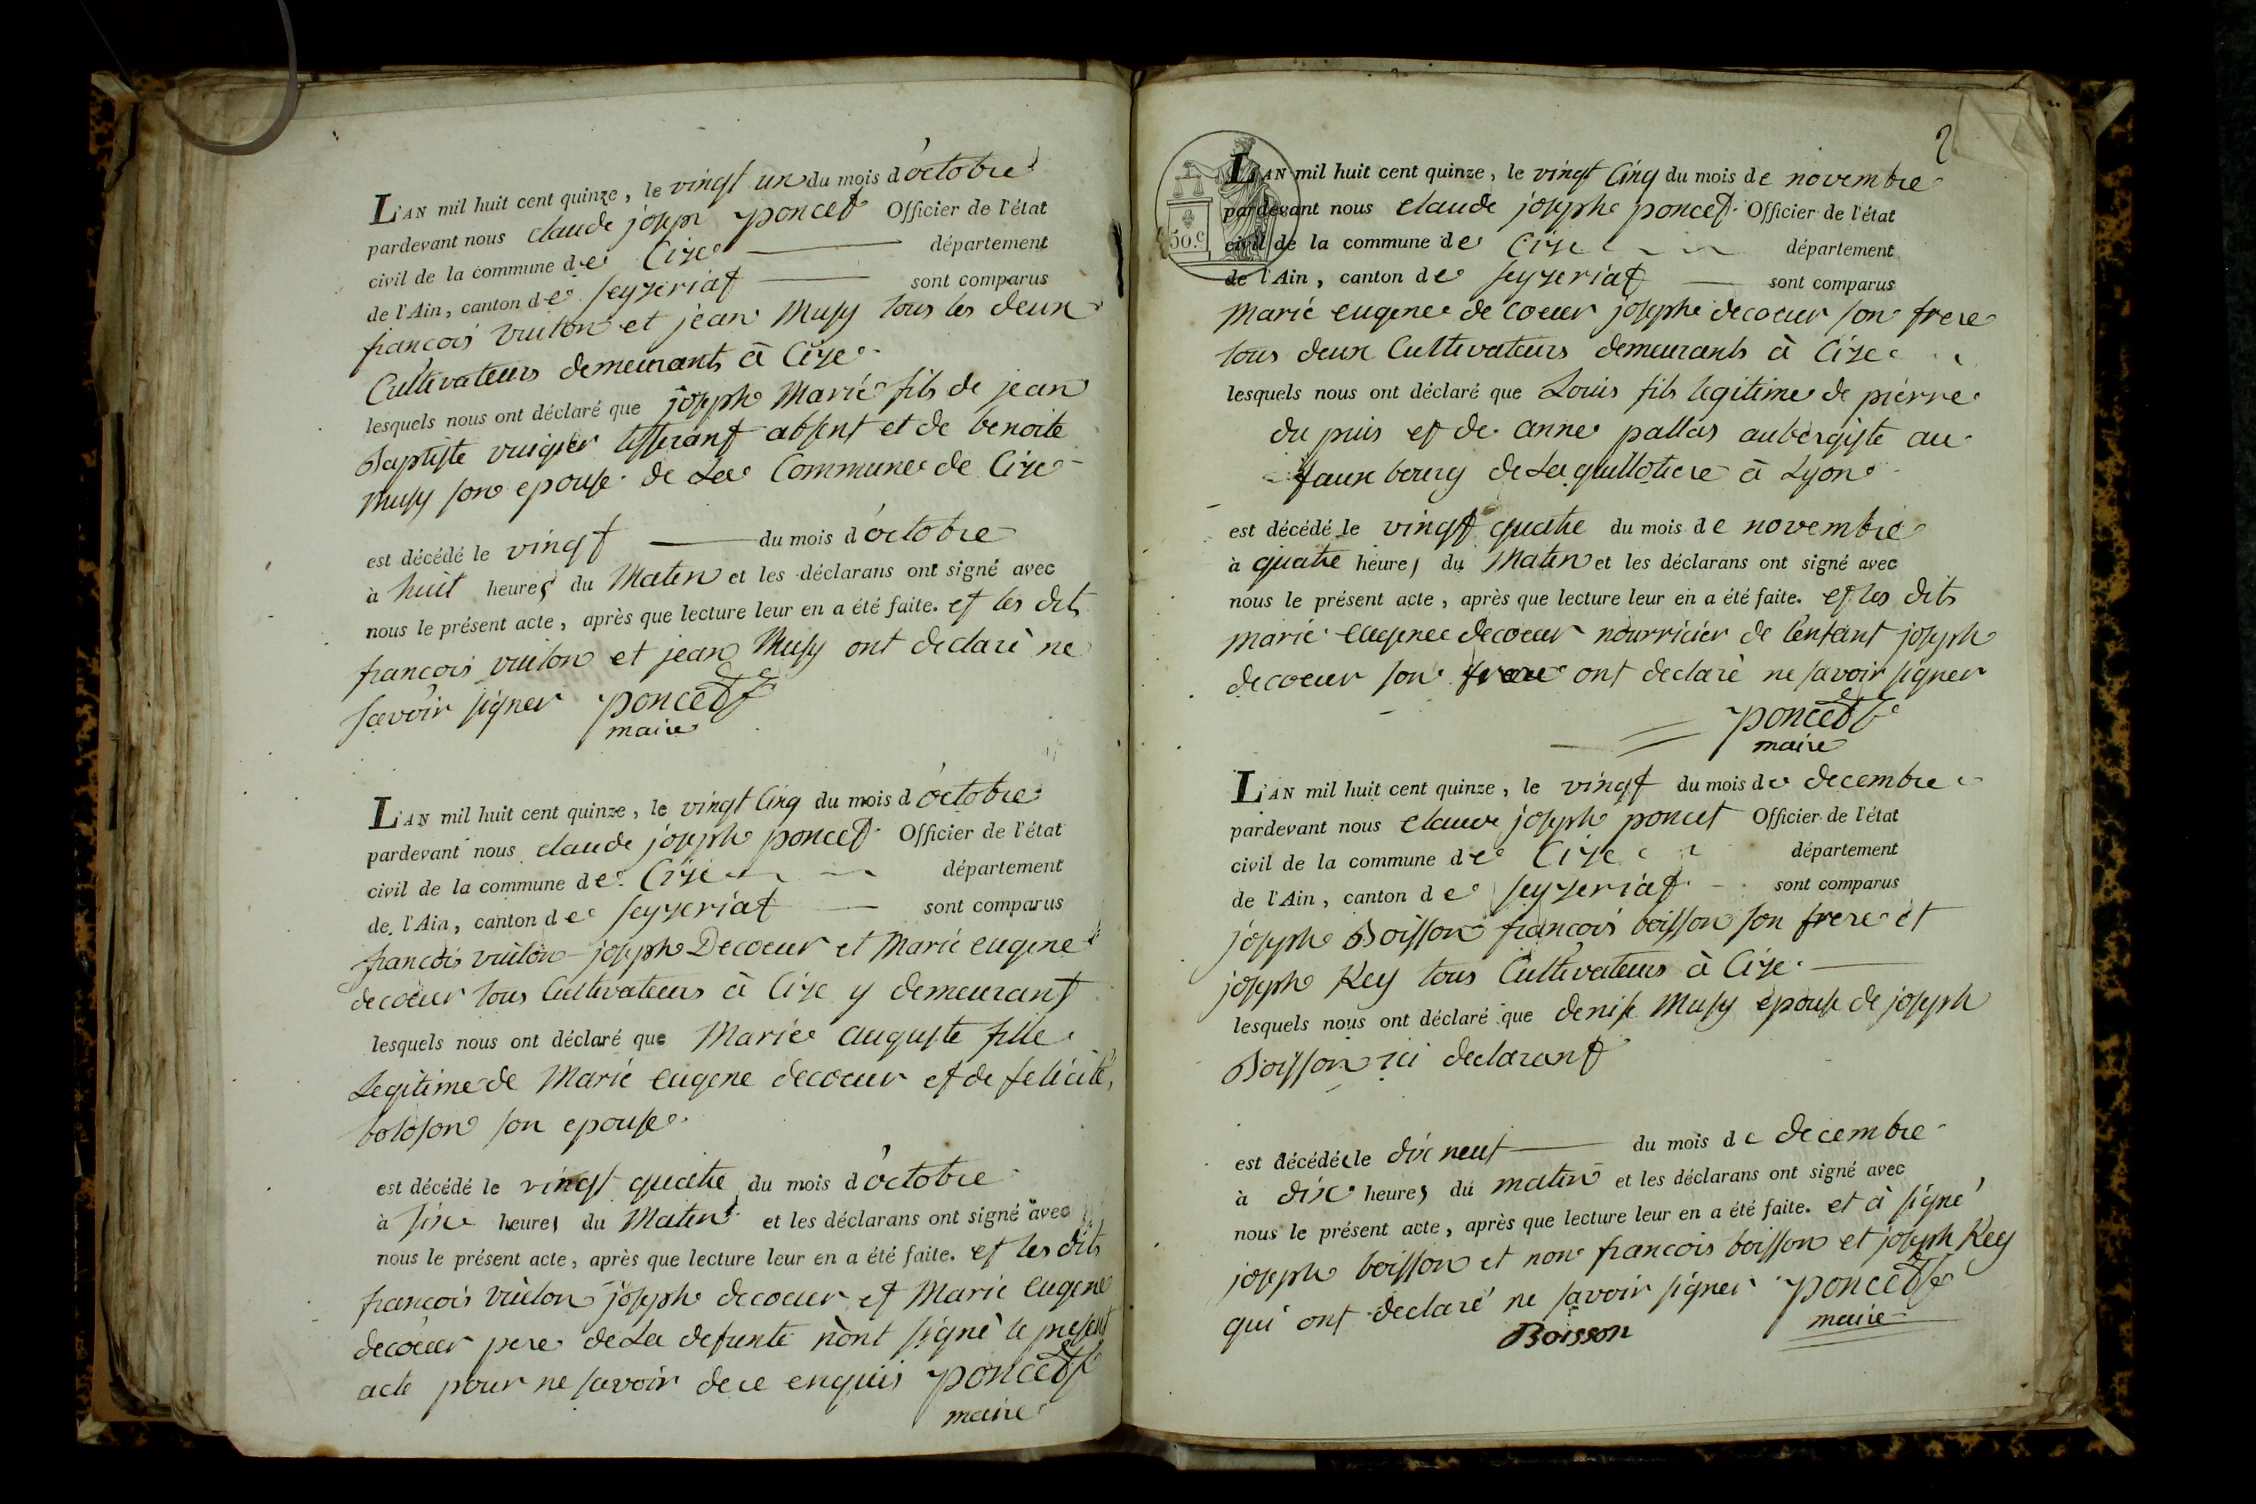 L'AN mil huit cent quinze, le vingt un du mois d'octobre
pardevant nous claude joseph poncet Officier de l'état
civil de la commune de Cize département
de l'Ain, canton de seyzeriat sont comparus
francois vuiton et jean Musy tous les deux
Cultivateurs demeurants à Cize
lesquels nous ont déclaré que joseph Marie fils de jean
Baptiste tisserant absent et de benoite
Musy son epouse de La Commune de Cize
est décédé le vingt du mois d'octobre
à huit heures du Matin et les déclarans ont signé avec
nous le présent acte, après que lecture leur en a été faite. et les dits
francois vuiton et jean Musy ont declaré ne
savoir signer poncet
maire
L'AN mil huit cent quinze, le vingt Cinq du mois d'octobre
pardevant nous claude joseph poncet Officier de l'état
civil de la commune de Cize département
de l'Ain, canton de seyzeriat sont comparus
francois vuiton joseph Decoeur et Marie eugene
decoeur tous Cultivateurs à Cize y demeurant
lesquels nous ont déclaré que Marie auguste fille
Legitime de Marie eugene decoeur et de felicité
boloson son epouse
est décédé le vingt quatre du mois d'octobre
à six heures du Matin et les déclarans ont signé avec
nous le présent acte, après que lecture leur en a été faite. et les dits
francois vuiton joseph decoeur et Marie eugene
decoeur pere de La defunte n'ont signé le present
acte pour ne savoir de ce enquis poncet
maire
2
50.c
L'AN mil huit cent quinze, le vingt Cinq du mois de novembre
pardevant nous claude joseph poncet Officier de l'état
civil de la commune de Cize département
de l'Ain, canton de seyzeriat sont comparus
Marie eugene de coeur joseph decoeur son frere
tous deux Cultivateurs demeurants à Cize
lesquels nous ont déclaré que Louis fils legitime de pierre
du puis et de anne pallas aubergiste au
faux bourg de La guillotiere à Lyon
est décédé le vingt quatre du mois de novembre
à quatre heures du Matin et les déclarans ont signé avec
nous le présent acte, après que lecture leur en a été faite. et les dits
marie eugene decoeur nourricier de l'enfant joseph
decoeur son frere ont declaré ne savoir signer
poncet
maire
L'AN mil huit cent quinze, le vingt du mois de decembre
pardevant nous claude joseph poncet Officier de l'état
civil de la commune de Cize département
de l'Ain, canton de seyzeriat sont comparus
joseph Boisson francois boisson son frere et
joseph Rey tous Cultivateurs à Cize
lesquels nous ont déclaré que denise Musy epouse de joseph
Boisson ici declarant
est décédée le dix neuf du mois de decembre
à dix heures du matin et les déclarans ont signé avec
nous le présent acte, après que lecture leur en a été faite. et à signé
joseph boisson et non francois boisson et joseph Rey
qui ont declaré ne savoir signer poncet
Boisson maire